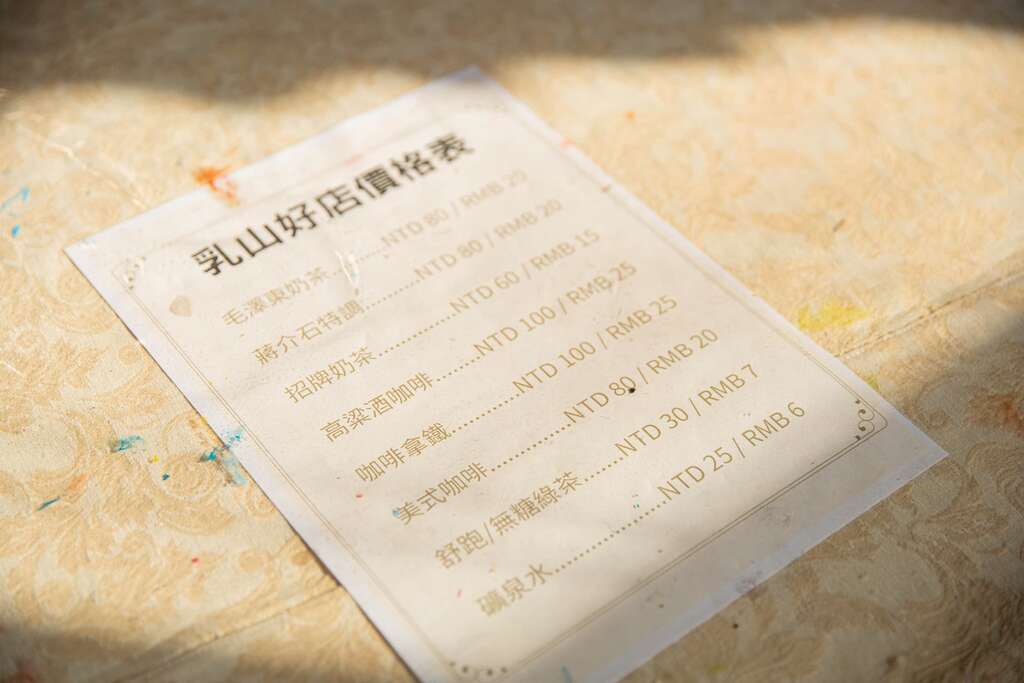 乳山好店價格表
毛澤東奶茶...............NTD 80 / RMB 20
蔣介石特調..............NTD 80 / RMB 20
招牌奶茶....................NTD 60 / RMB 15
高粱酒咖啡..........NTD 100 / RMB 25
咖啡拿鐵.................NTD 100 / RMB 25
美式咖啡....................NTD 80 / RMB 20
舒跑/無糖綠茶.......NTD 30 / RMB 7
礦泉水...........................NTD 25 / RMB 6